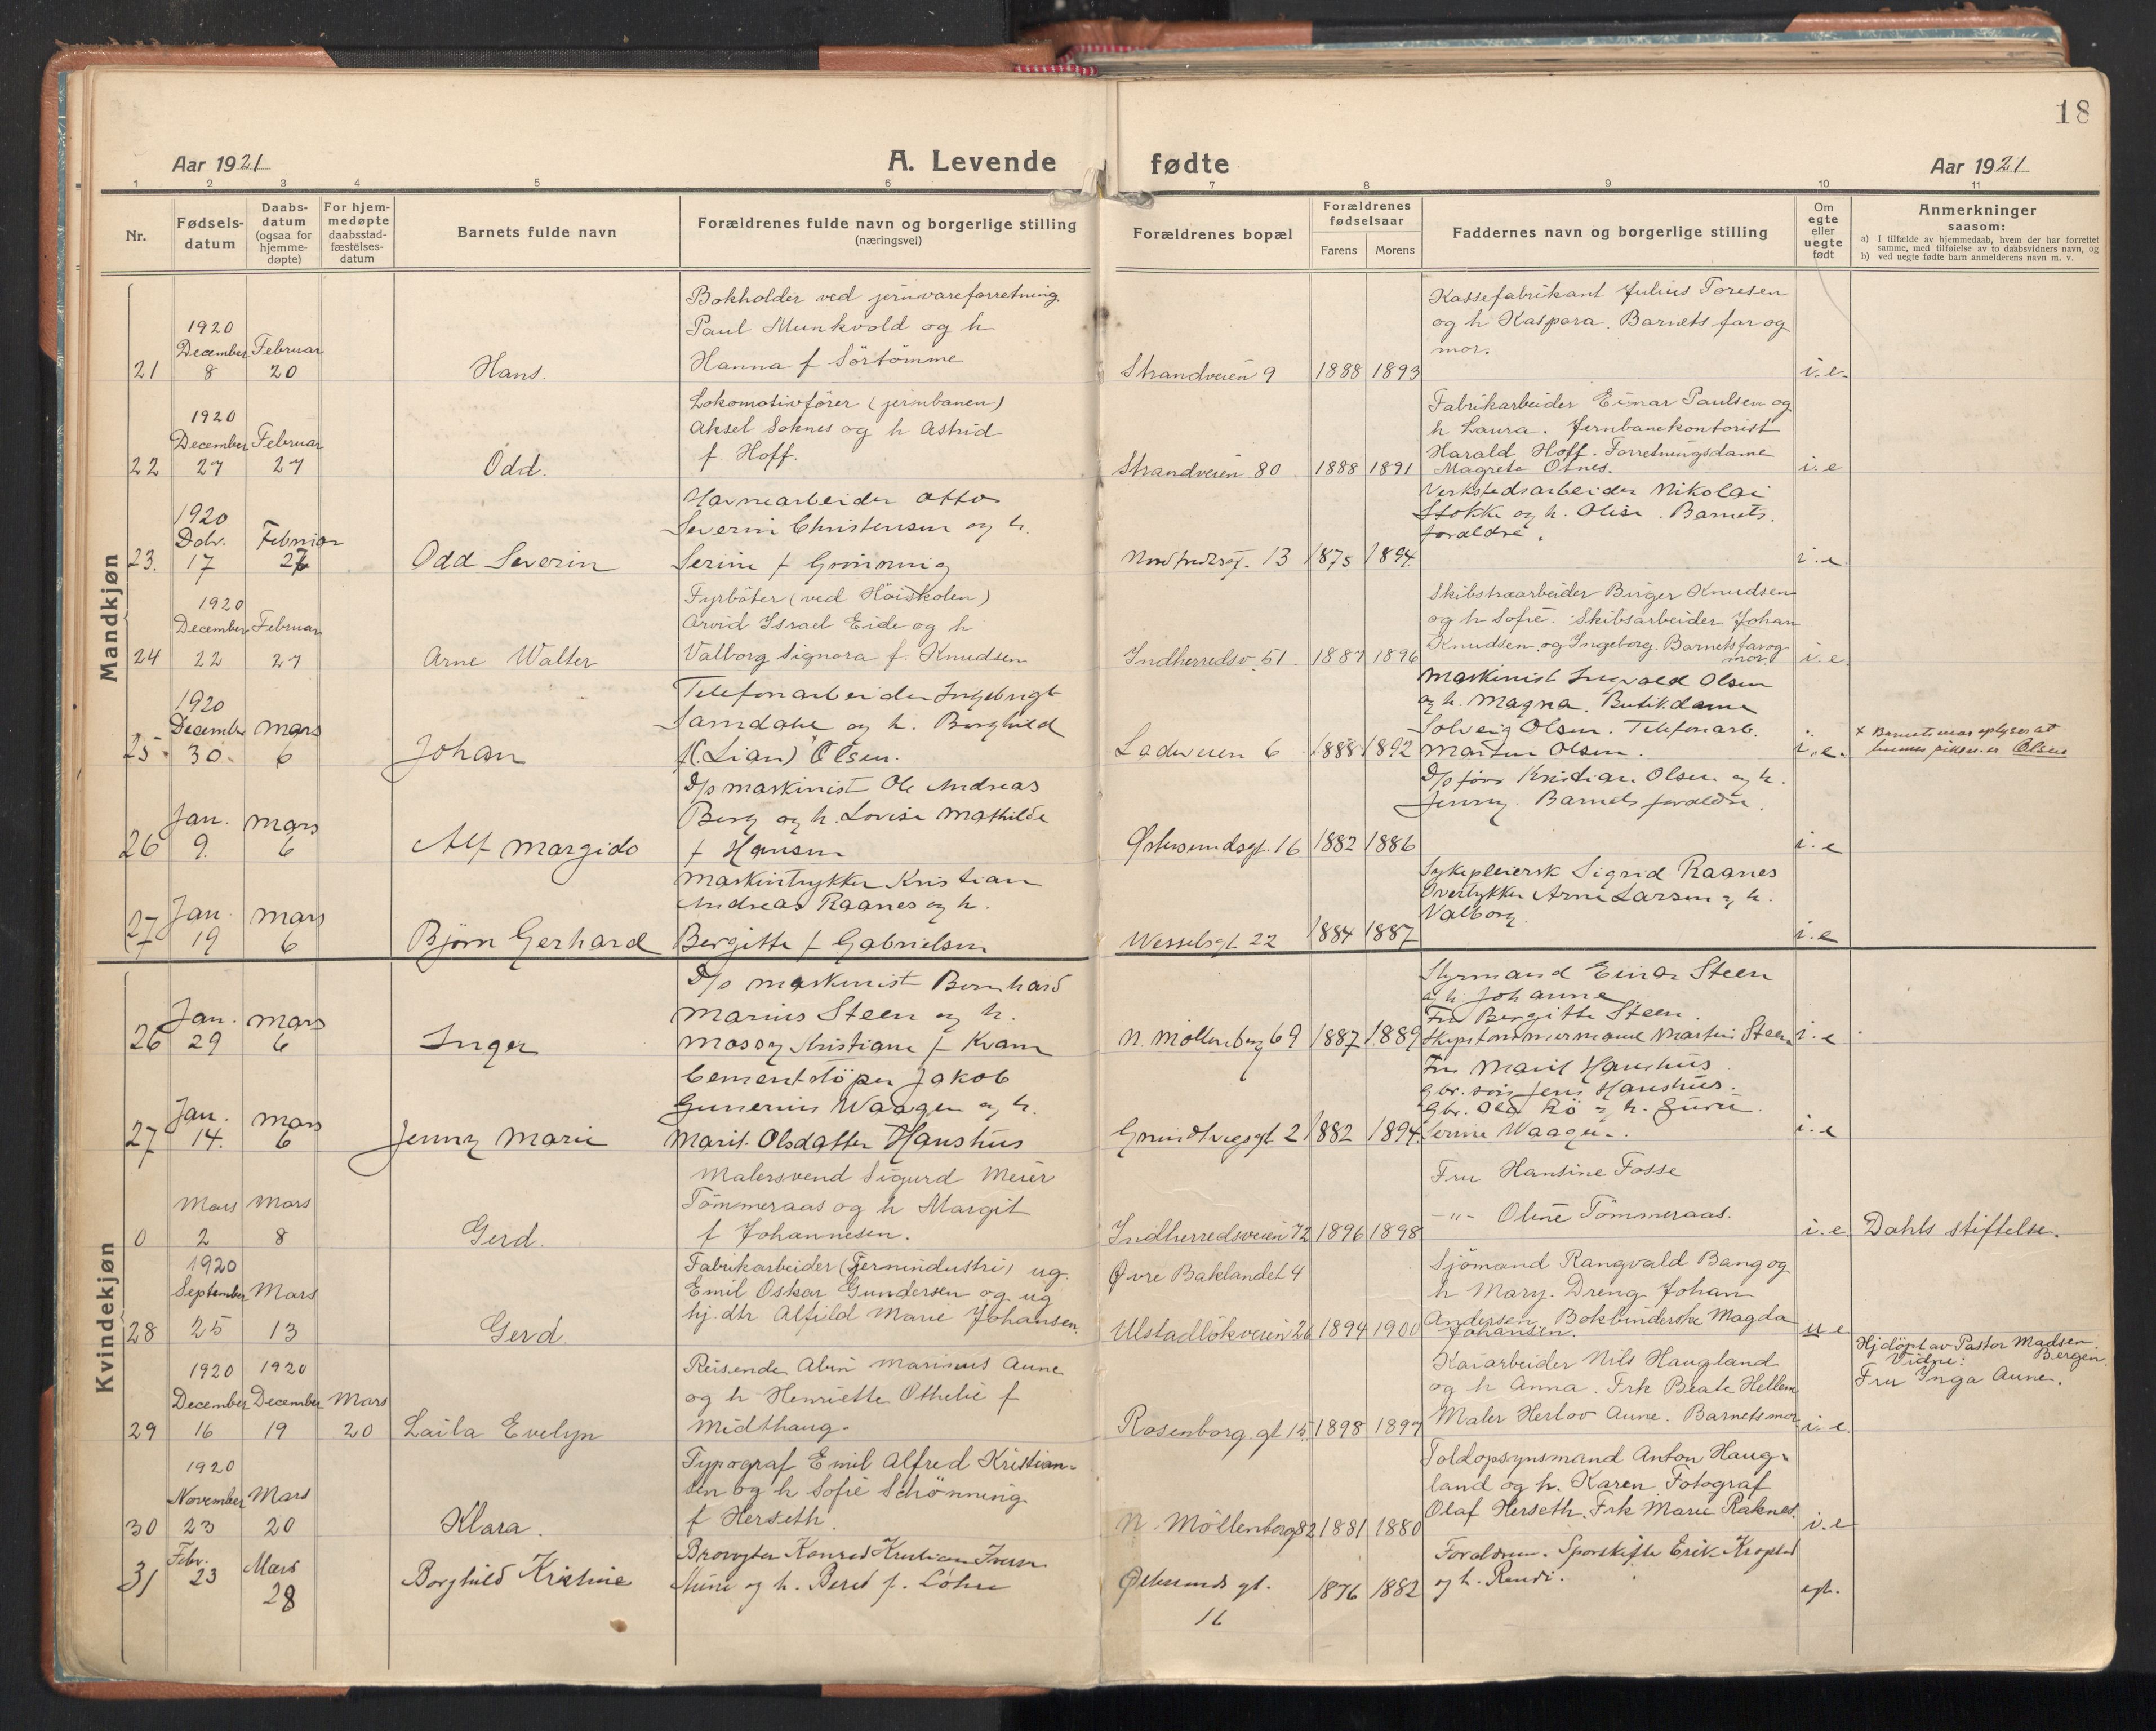 18
Aar 1921
A. Levende fødte
Aar 1921
1 2 3 4 5 6 7 8 9 10 11
Nr.
Fødsels-
datum
Daabs-
datum
(ogsaa for
hjemme-
døpte)
For hjem-
medøpte
daabsstad-
fæstelses-
datum
Barnets fulde navn
Forældrenes fulde navn og borgerlige stilling
(næringsvei)
Forældrenes bopæl
Forældrenes
fødselsaar
Farens Morens
Faddernes navn og borgerlige stilling
Om
egte
eller
uegte
født
Anmerkninger
saasom:
a) I tilfælde av hjemmedaab, hvem der har forrettet
samme, med tilføielse av to daabsvidners navn, og
b) ved uegte fødte barn anmelderens navn m. v.
Mandkjøn
21
1920
December
8
Februar
20
Hans.
Bokholder ved jernvareforretning
Paul Munkvold og h
Hanna f Sörtömme
Strandveien 9
1888 1893
Kassefabrikant Julius Toresen
og h Kaspara. Barnets far og
mor.
i.e.
22
1920
December
27
Februar
27
Odd.
Lokomotivfører (jernbanen)
Aksel Soknes og h Astrid
f Hoff.
Strandveien 80
1888 1891
Fabrikarbeider Einar Paulsen og
h Laura. Jernbanekontorist
Harald Hoff. Forretningsdame
Magrete Otnes.
i.e
23.
1920
17
Februar
27
Odd Severin
Havnearbeider Otto
Severin Christensen og h.
Serine f Grönning
13
1875 1894
Verkstedsarbeider Nikolai
Stokke og h. Olise. Barnets
foraldre.
i.e.
24
1920
December
22
Februar
27
Arne Walter
Fyrböter (ved Höiskolen)
Arvid Israel Eide og h
Valborg Signora f. Knudsen
Indherredsv. 51
1887 1896
Skibstræarbeider Birger Knudsen
og h Sofie. Skibsarbeider Johan
Knudsen og Ingeborg. Barnets far og
mor.
i.e.
25.
1920
December
30.
Mars
6
Johan
Telefonarbeider Ingebrigt
Samdahl og h. Borghild
f (Lian) x Olsen.
Ladeveien 6
1888 1892
Maskinist Ingvald Olsen
og h. Magna. Butikdame
Solveig Olsen. Telefonarb.
Martin Olsen.
i.e.
x Barnets mor oplyser at
hennes pikenavn er Olsen
26
Jan.
9.
Mars
6
Alf Margido
D/s maskinist Ole Andreas
Berg og h. Lovise Mathilde
f Hansen
Østersundsgt. 16
1882 1886
D/s förer Kristian Olsen og h.
Jenny. Barnets foraldre.
i.e
27
Jan.
19
Mars
6
Bjørn Gerhard
Maskintrykker Kristian
Andreas Raanes og h.
Bergitte f Gabrielsen
Wesselsgt. 22
1884 1887
Sykepleiersk Sigrid Raanes
Overtrykker Arne Larsen og h.
Valborg.
i.e
Kvindekjøn
26
Jan.
29
Mars
6
Inger
D/s maskinist Bernhard
Marius Steen og h.
Mossy Kristiane f Kvam
N. Möllenberg 69
1887 1889
Styrmand Einar Steen
og h. Johanne
Fru Bergitte Steen.
Skipstømmermand Martin Steen
i.e
27
Jan.
14.
Mars
6
Jenny Marie
Cementstöper Jakob
Gunerius Waagen og h.
Marit Olsdatter Hanshus
Grundtvigsgt. 2
1882 1894
Fru Marit Hanshus
Gbr. sön Jens Hanshus.
Gbr. Ole Rö og h. Guru.
Serine Waagen.
i.e
0
Mars
2
Mars
8
Gerd.
Malersvend Sigurd Meier
Tömmeraas og h Margit
f Johannesen.
Indherredsveien 72
1896 1898
Fru Hansine Fosse
-"- Oline Tömmeraas.
i.e
Dahls stiftelse.
28
1920
September
25
Mars
13
Gerd.
Fabrikarbeider (Jernindustri) ug.
Emil Oskar Gundersen og ug
hj. dtr Alfild Marie Johansen.
Øvre Baklandet 4
Ulstadlökveien 26
1894 1900
Sjömand Rangvald Bang og
h Mary. Dreng Johan
Andersen. Bokbinderske Magda
Johansen.
u e
29
1920
December
16
1920
December
19
Mars
20
Laila Evelyn
Reisende Alvin Marinius Aune
og h Henriette Othelie f
Midthaug.
Rosenborg gt 15.
1898 1897
Kaiarbeider Nils Haugland
og h Anna. Frk Beate Hellem
Maler Herlov Aune. Barnets mor.
i.e.
Hjdöpt av Pastor Madsen
Vidne: Bergen.
Fru Inga Aune.
30
1920
November
23
Mars
20
Klara.
Typograf Emil Alfred Kristian-
sen og h Sofie Schönning
f Herseth
N. Möllenberg 82
1881 1880
Toldopsynsmand Anton Haug-
land og h. Karen. Fotograf
Olaf Herseth. Frk Marie Raknes.
i.e
31
Febr.
23
Mars
28
Borghild Kristine
Brovogter Konrad Kristian Iversen
Aune og h. Beret f. Löhre
Østersunds gt.
16
1876 1882
Foraldrene. Sporskifter Erik
og h. Randi.
egte.